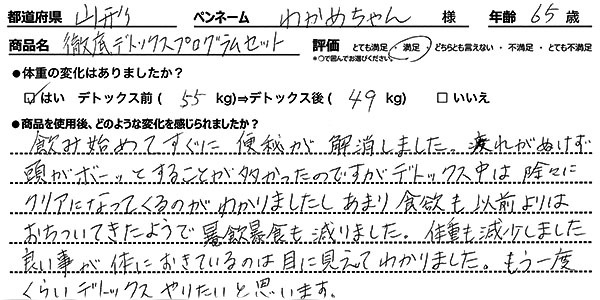 都道府県 山形 ペンネーム わかめちゃん 様 年齢 65 歳
商品名 徹底デトックスプログラムセット 評価 とても満足 ・ 満足 ・ どちらとも言えない ・ 不満足 ・ とても不満足
※○で囲んでお選びください。
●体重の変化はありましたか？
☑はい デトックス前 ( 55 kg)⇒デトックス後 ( 49 kg) □いいえ
●商品を使用後、どのような変化を感じられましたか？
飲み始めてすぐに 便秘が 解消しました。疲れがぬけず
頭がボーッとすることが多かったのですがデトックス中は 除々に
クリアになってくるのがわかりましたし あまり 食欲も 以前よりは
おちついてきたようで 暴飲暴食も減りました。体重も減少しました
良い事が 体におきているのは 目に見えてわかりました。もう一度
くらい デトックス やりたいと思います。